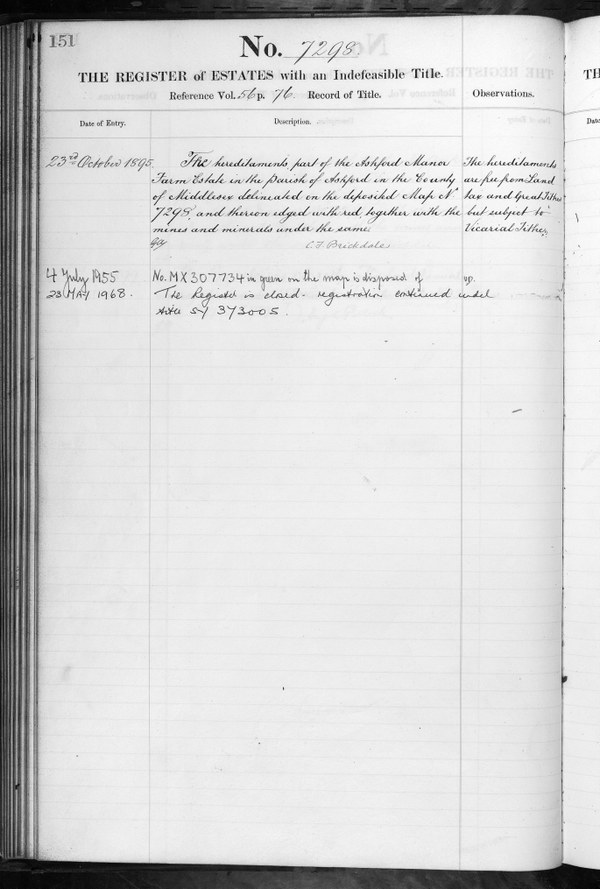 151
No. 7298
THE REGISTER of ESTATES with an Indefeasible Title.
Reference Vol. 56 p. 76. Record of Title.
Observations.
Date of Entry.
Description.
23rd October 1895
The hereditaments, part of the Ashford Manor
Farm Estate in the Parish of Ashford in the County
of Middlesex delineated on the deposited Map No
7298, and thereon edged with red, together with the
mines and minerals under the same.
C F Brickdale
The hereditaments
are free from Land
tax and Great Tithes
but subject to
Vicarial Tithe
4 July 1955
No. MX307734 in green on the map is disposed of
23 MAY 1968.
The Register is closed - registration continued under
title SY 373005.
TH